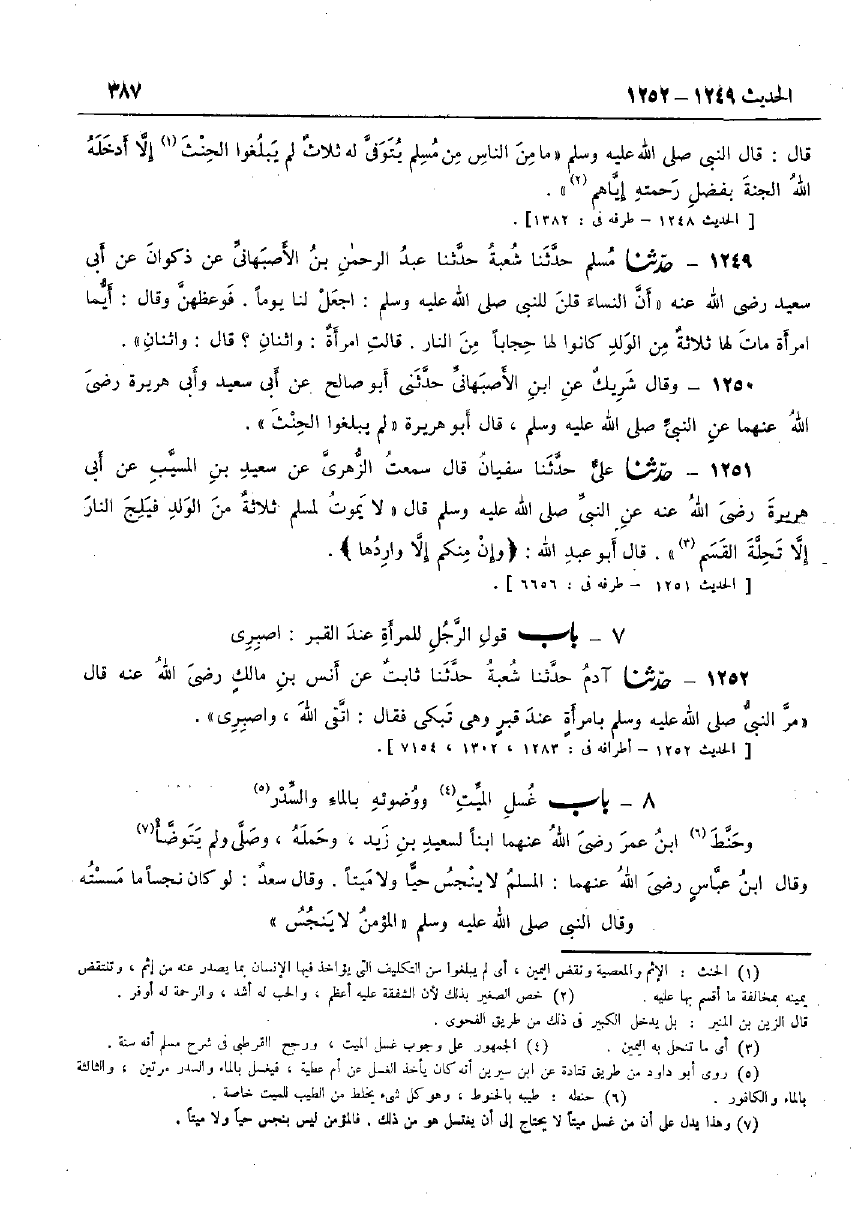 الحديث ١٢٤٩ – ١٢٥٢
٣٨٧
قال : قال النبى صلى الله عليه وسلم «ما مِنَ الناسِ مِن مُسلِمٍ يُتَوَفَّى له ثلاثٌ لم يَبلُغوا الحِنْثَ (١) إلَّا أَدخَلَهُ
اللهُ الجنةَ بفضلِ رَحمتهِ إيَّاهم (٢)» .
[ الحديث ١٢٤٨ – طرفه فى : ١٣٨٢] .
١٢٤٩ – حدّثنا مُسلم حدَّثَنا شُعبةُ حدَّثَنا عبدُ الرحمٰنِ بنُ الأصبَهانىِّ عن ذكوانَ عن أبى
سعيد رضى الله عنه «أنَّ النساءَ قلنَ للنبى صلى الله عليه وسلم : اجعَلْ لنا يوماً . فَوعظهنَّ وقال : أيُّما
امرأة ماتَ لها ثلاثةٌ مِن الوَلدِ كانوا لها حِجاباً مِنَ النار . قالتِ امرأةٌ : واثنانِ ؟ قال : واثنانِ» .
١٢٥٠ – وقال شَرِيكٌ عنِ ابنِ الأصبَهانىِّ حدَّثَنى أبو صالح عن أبى سعيد وأبى هريرة رضىَ
اللهُ عنهما عنِ النبىِّ صلى الله عليه وسلم ، قال أبو هريرة «لم يبلغوا الحِنْثَ» .
١٢٥١ – حدّثنا علىٌّ حدَّثَنا سفيانُ قال سمعتُ الزُّهرىَّ عن سعيدِ بنِ المسيَّبِ عن أبى
هريرةَ رضىَ اللهُ عنه عنِ النبىِّ صلى الله عليه وسلم قال «لا يَموتُ لمسلم ثلاثةٌ منَ الوَلدِ فيَلِجَ النارَ
إلَّا تَحِلَّةَ القَسَم (٣)» . قال أبو عبدِ الله : ﴿وإنْ مِنكم إلَّا وارِدُها﴾ .
[ الحديث ١٢٥١ – طرفه فى : ٦٦٥٦ ] .
٧ – باب قولِ الرَّجُلِ للمرأةِ عندَ القبر : اصبِرِى
١٢٥٢ – حدّثنا آدمُ حدَّثَنا شُعبةُ حدَّثَنا ثابتٌ عن أنس بنِ مالكٍ رضىَ اللهُ عنه قال
«مرَّ النبىُّ صلى الله عليه وسلم بامرأةٍ عندَ قبرٍ وهى تَبكى فقال : اتَّقى اللهَ ، واصبِرِى» .
[ الحديث ١٢٥٢ – أطرافه فى : ١٢٨٣ ، ١٣٠٢ ، ٧١٥٤ ] .
٨ – باب غُسلِ الميِّتِ (٤) ووُضوئهِ بالماء والسِّدْر (٥)
وحَنَّطَ (٦) ابنُ عمرَ رضىَ اللهُ عنهما ابناً لسعيدِ بنِ زَيد ، وحَملَهُ ، وصَلَّى ولم يَتَوضَّأْ (٧)
وقال ابنُ عبَّاسٍ رضىَ اللهُ عنهما : المسلمُ لا ينْجسُ حيًّا ولا مَيتاً . وقال سعدٌ : لو كان نجساً ما مَسسْتُه
وقال النبى صلى الله عليه وسلم «المؤمنُ لا يَنجُسُ»
(١) الحنث : الإثم والمعصية ونقض اليمين ، أى لم يبلغوا سن التكليف التى يؤاخذ فيها الإنسان بما يصدر عنه من إثم ، وتنتقض
يمينه بمخالفة ما أقسم بها عليه . (٢) خص الصغير بذلك لأن الشفقة عليه أعظم ، والحب له أشد ، والرحمة له أوفر .
قال الزين بن المنير : بل يدخل الكبير فى ذلك من طريق الفحوى .
(٣) أى ما تنحل به اليمين . (٤) الجمهور على وجوب غسل الميت ، ورجح القرطبى فى شرح مسلم أنه سنة .
(٥) روى أبو داود من طريق قتادة عن ابن سيرين أنه كان يأخذ الغسل عن أم عطية ، فيغسل بالماء والسدر مرتين ، والثالثة
بالماء والكافور . (٦) حنطه : طيبه بالحنوط ، وهو كل شىء يخلط من الطيب للميت خاصة .
(٧) وهذا يدل على أن من غسل ميتاً لا يحتاج إلى أن يغتسل هو من ذلك . فالمؤمن ليس بنجس حياً ولا ميتاً .